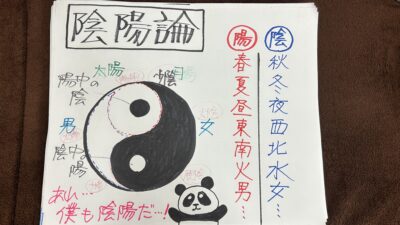 陰陽論
陰
秋冬夜西北水女…
陽
春夏昼東南火男…
太陽
月
陽中の
陰
男
女
陰中の
陽
僕も陰陽だ…!